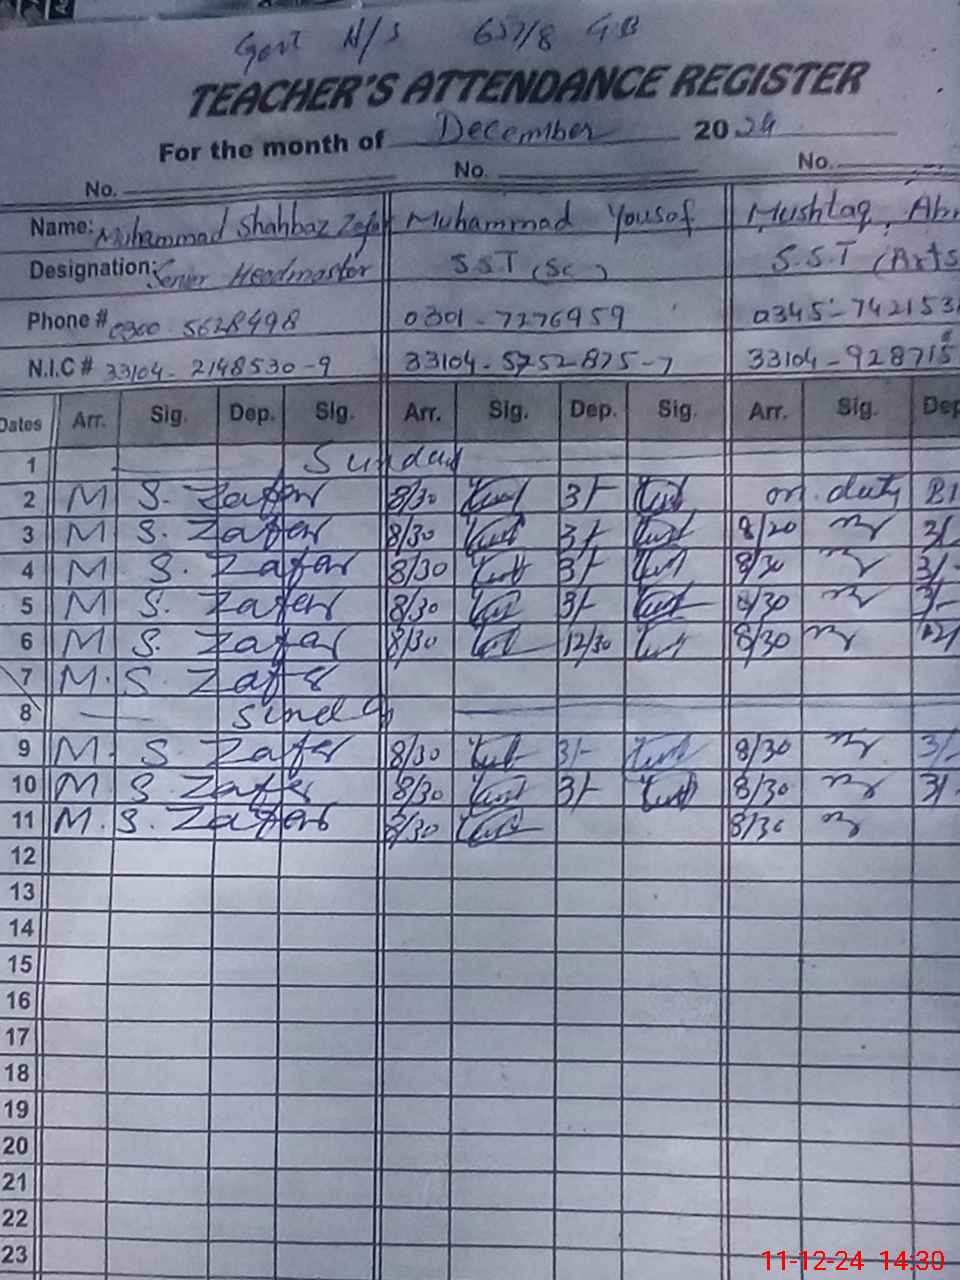 Govt H/S 657/8 GB
TEACHER'S ATTENDANCE REGISTER
For the month of December 2024
No. No. No.
Name: Muhammad Shahbaz Zafar Muhammad Yousaf Mushtaq Ahm
Designation: Senior Headmaster S.S.T (Sc) S.S.T (Arts
Phone # 0300-5628498 0301-7276959 0345-742153
N.I.C # 33104-2148530-9 33104-5752875-7 33104-928715
Dates Arr. Sig. Dep. Sig. Arr. Sig. Dep. Sig. Arr. Sig. Dep
1 Sunday
2 M S. Zafar 8/30 3/- on duty
3 M S. Zafar 8/30 3/- 8/20 3/
4 M S. Zafar 8/30 3/- 8/30 3/-
5 M S. Zafar 8/30 3/- 8/30 3/-
6 M S. Zafar 8/30 12/30 8/30 12/
7 M. S. Zafr
8 Sunday
9 M. S. Zafar 8/30 3/- 8/30 3/-
10 M S Zafar 8/30 3/- 8/30 3/-
11 M. S. Zafar 8/30 8/30
12
13
14
15
16
17
18
19
20
21
22
23
11-12-24 14:30